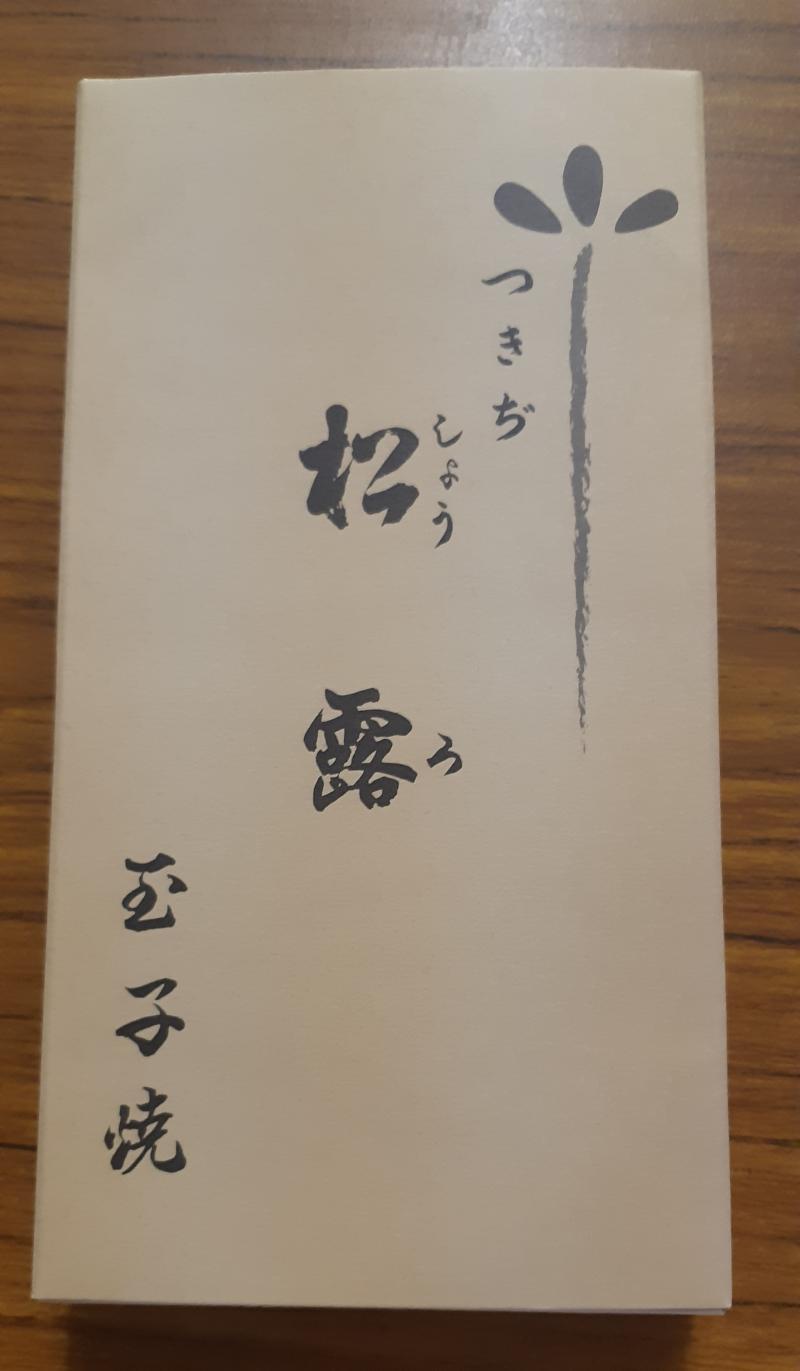 つきぢ
しょうろ
松露
玉子焼